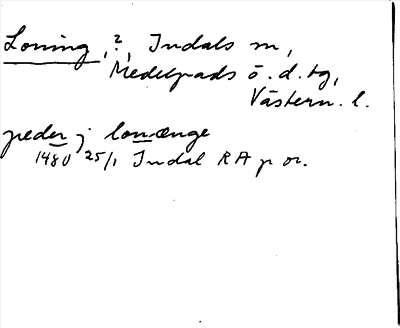 Loning, ?, Indals sn,
Medelpads ö. d. tg,
Västern. l.
peder j lonænge
1480 25/1 Indal RA p or.